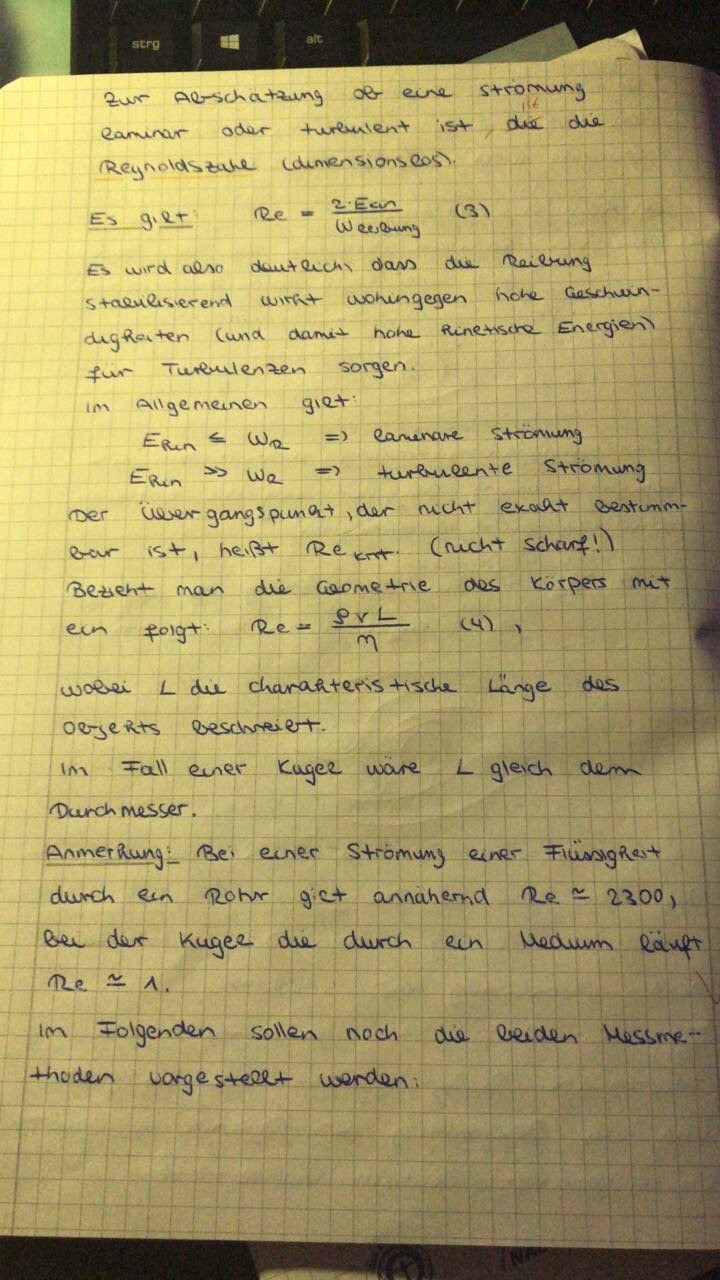 strg alt
Zur Abschätzung ob eine Strömung
ist
laminar oder turbulent ist, die die
Reynoldszahl (dimensionslos).
Es gilt: Re = 2·Ekin / WReibung (3)
Es wird also deutlich, dass die Reibung
stabilisierend wirkt wohingegen hohe Geschwin-
digkeiten (und damit hohe kinetische Energien)
für Turbulenzen sorgen.
Im Allgemeinen gilt:
EKin ≤ WR => laminare Strömung
EKin >> WR => turbulente Strömung
Der Übergangspunkt, der nicht exakt bestimm-
bar ist, heißt Rekrit. (nicht scharf!)
Bezieht man die Geometrie des Körpers mit
ein folgt: Re = ρvL / η (4),
wobei L die charakteristische Länge des
Objekts beschreibt.
Im Fall einer Kugel wäre L gleich dem
Durchmesser.
Anmerkung: Bei einer Strömung einer Flüssigkeit
durch ein Rohr gilt annähernd Re ≃ 2300,
bei der Kugel die durch ein Medium läuft
Re ≃ 1.
Im Folgenden sollen noch die beiden Messme-
thoden vorgestellt werden: